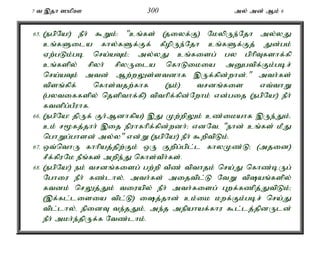 7 வ இதா ஸமிஊ 300 அல் அன் ஆம் 6
65. (நபியே) நீர் கூறும்: "உங்கள் (தலைக்கு) மேலிருந்தோ அல்லது
உங்களுடைய கால்களுக்குக் கீழிருந்தோ உங்களுக்குத் துன்பம்
ஏற்படும்படி செய்யவும், அல்லது உங்களைப் பல பிரிவுகளாக்கி
உங்களில் சிலர் சிலருடைய கொடுமையை அனுபவிக்கும்படிச்
செய்யவும் அவன் ஆற்றலுள்ளவனாக இருக்கின்றான்." அவர்கள்
விளங்கிக் கொள்வதற்காக (நம்) வசனங்களை எவ்வாறு
(பலவகைகளில் தெளிவாக்கி) விவரிக்கின்றோம் என்பதை (நபியே) நீர்
கவனிப்பீராக.
66. (நபியே! திருக் குர்ஆனாகிய) இது முற்றிலும் உண்மையாக இருந்தும்,
உம் சமூகத்தார் இதை நிராகரிக்கின்றனர்; எனவே, "நான் உங்கள் மீது
பொறுப்பாளன் அல்ல" என்று (நபியே) நீர் கூறிவிடும்.
67. ஒவ்வொரு காரியத்திற்கும் ஒரு குறிப்பிட்ட காலமுண்டு; (அதனை)
சீக்கிரமே நீங்கள் அறிந்து கொள்வீர்கள்.
68. (நபியே) நம் வசனங்களைப் பற்றி வீண் விவாதம் செய்து கொண்டிருப்
போரை நீர் கண்டால், அவர்கள் அதைவிட்டு வேறு விஷயங்களில்
கவனம் செலுத்தும் வரையில் நீர் அவர்களைப் புறக்கணித்துவிடும்;
(இக்கட்டளையை விட்டு) ஷைத்தான் உம்மை மறக்கும்படிச் செய்து
விட்டால், நினைவு வந்ததும், அந்த அநியாயக்கார கூட்டத்தினருடன்
நீர் அமர்ந்திருக்க வேண்டாம்.